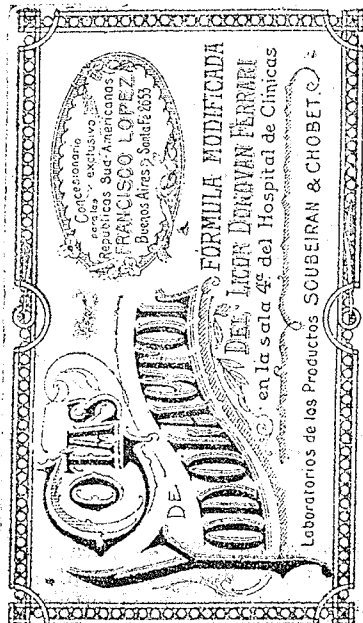 GOTAS
DE
Concesionario
para las y exclusivo
Republicas Sud-Americanas
FRANCISCO LOPEZ
Buenos Aires, Santa Fé 2653
FORMULA MODIFICADA
DEL LICOR DONOVAN FERRARI
en la sala 4ª del Hospital de Clínicas
Laboratorios de los Productos SOUBEIRAN & CHOBET